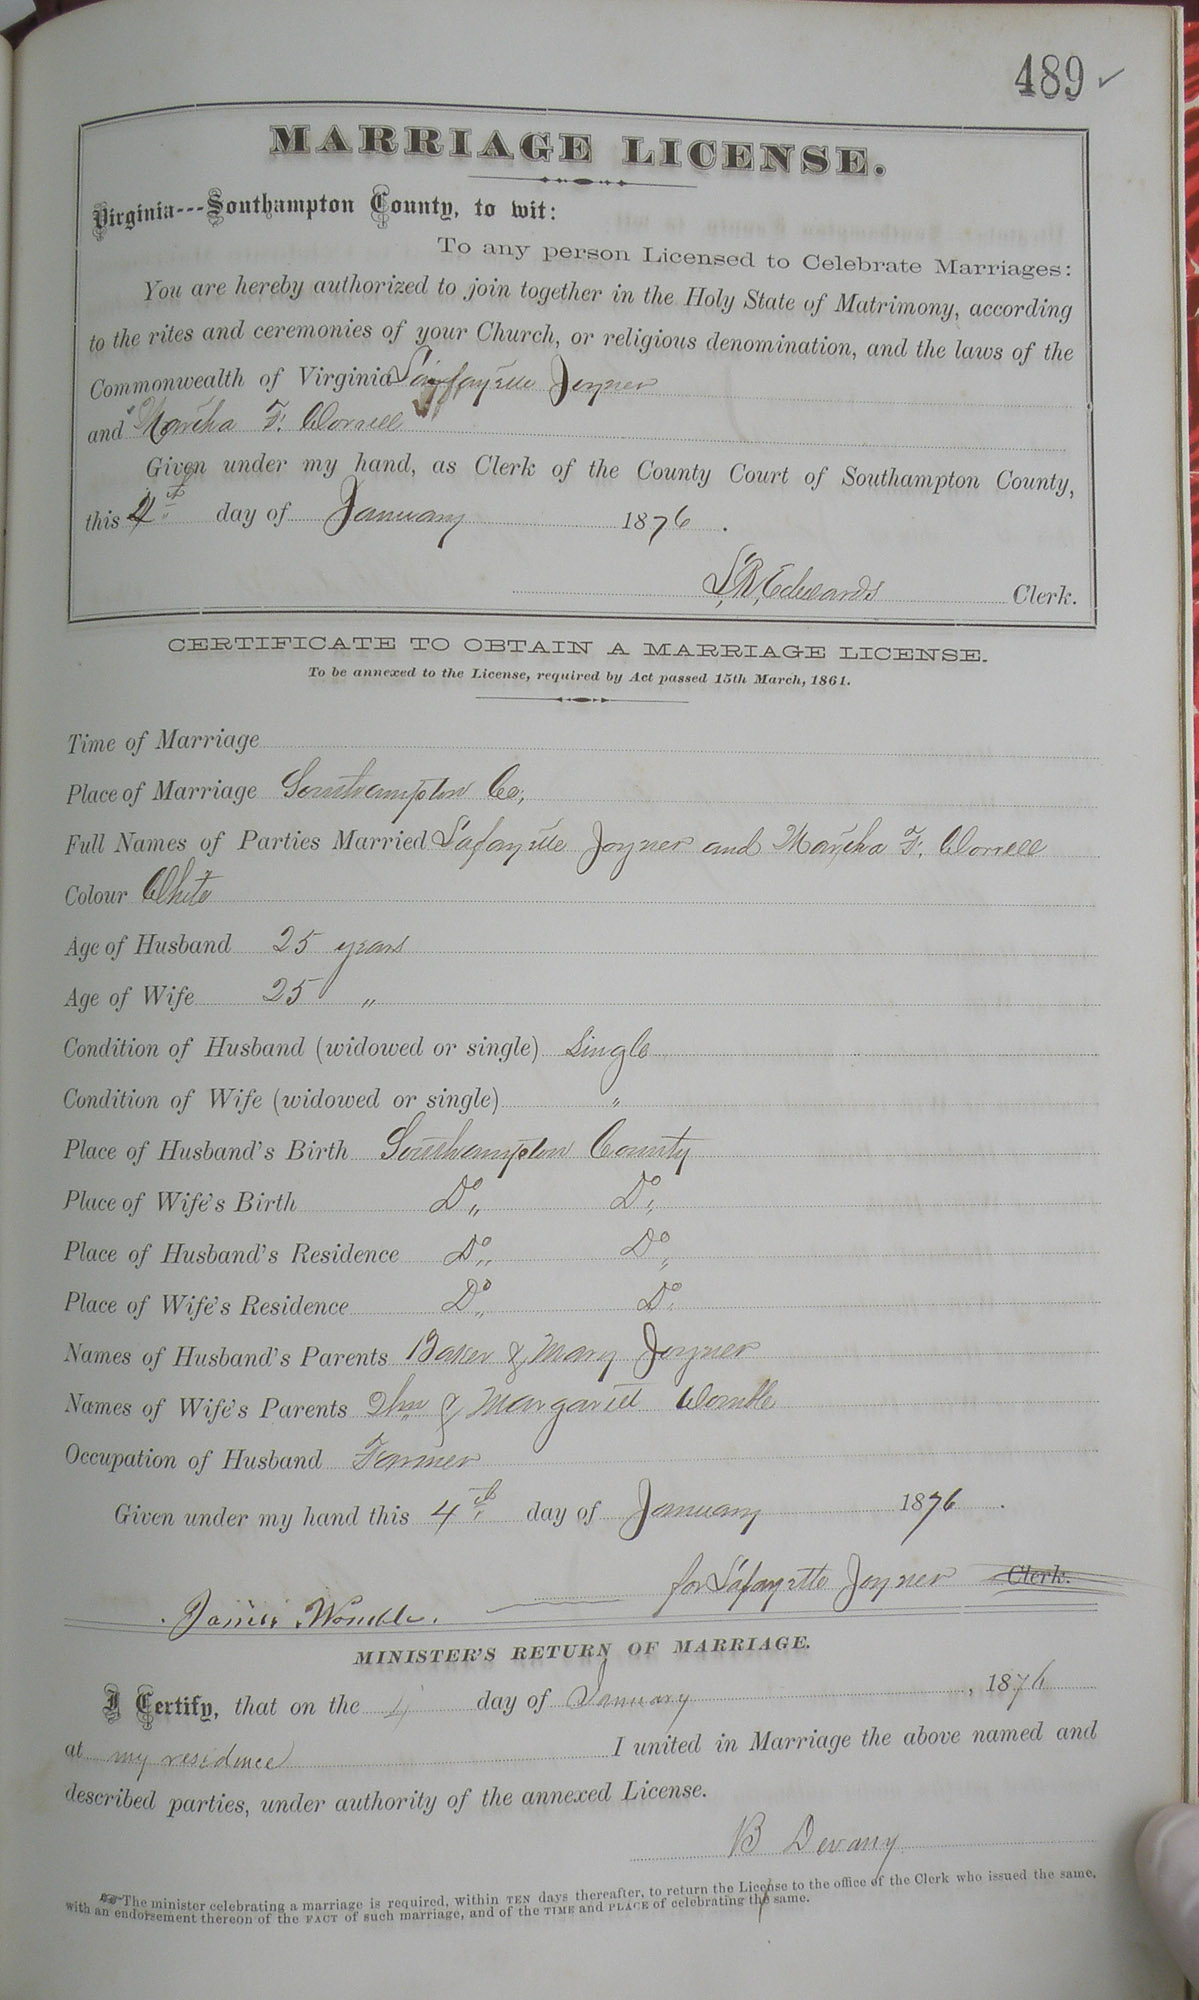 489 ✓
MARRIAGE LICENSE.
Virginia---Southampton County, to wit:
To any person Licensed to Celebrate Marriages:
You are hereby authorized to join together in the Holy State of Matrimony, according
to the rites and ceremonies of your Church, or religious denomination, and the laws of the
Commonwealth of Virginia Lafayette Joyner
and Martha F. Worrell
Given under my hand, as Clerk of the County Court of Southampton County,
this 4th day of January 1876.
L. R. Edwards Clerk.
CERTIFICATE TO OBTAIN A MARRIAGE LICENSE.
To be annexed to the License, required by Act passed 15th March, 1861.
Time of Marriage
Place of Marriage Southampton Co,
Full Names of Parties Married Lafayette Joyner and Martha F. Worrell
Colour White
Age of Husband 25 years
Age of Wife 25 "
Condition of Husband (widowed or single) Single
Condition of Wife (widowed or single) "
Place of Husband's Birth Southampton County
Place of Wife's Birth Do Do
Place of Husband's Residence Do Do
Place of Wife's Residence Do Do
Names of Husband's Parents Baker & Mary Joyner
Names of Wife's Parents & Margarett Womble
Occupation of Husband Farmer
Given under my hand this 4th day of January 1876.
for Lafayette Joyner Clerk.
James Womble.
MINISTER'S RETURN OF MARRIAGE.
I Certify, that on the 4 day of January, 1876
at my residence I united in Marriage the above named and
described parties, under authority of the annexed License.
B Devany
The minister celebrating a marriage is required, within TEN days thereafter, to return the License to the office of the Clerk who issued the same,
with an endorsement thereon of the FACT of such marriage, and of the TIME and PLACE of celebrating the same.